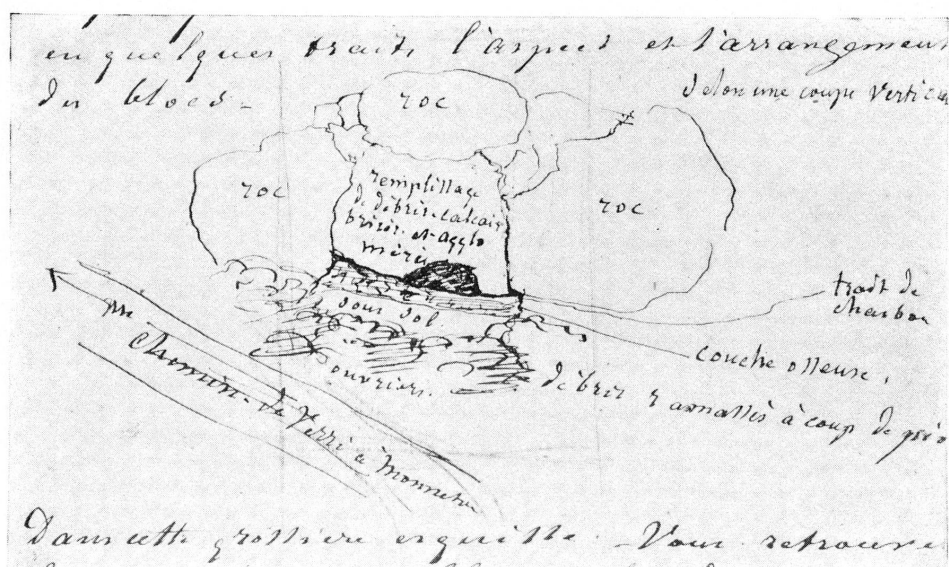 en quelques traits l'aspect et l'arrangement
des blocs -
selon une coupe vertica
roc
roc
roc
remplissage
de débris calcair
brisés et agglo
mérés
trait de
charbon
sous sol
couche osseuse.
ouvriers.
débris ramassés à coup de pio
Chemin de Veiri à Monnetié
Dans cette grossière esquisse - Vous retrouve